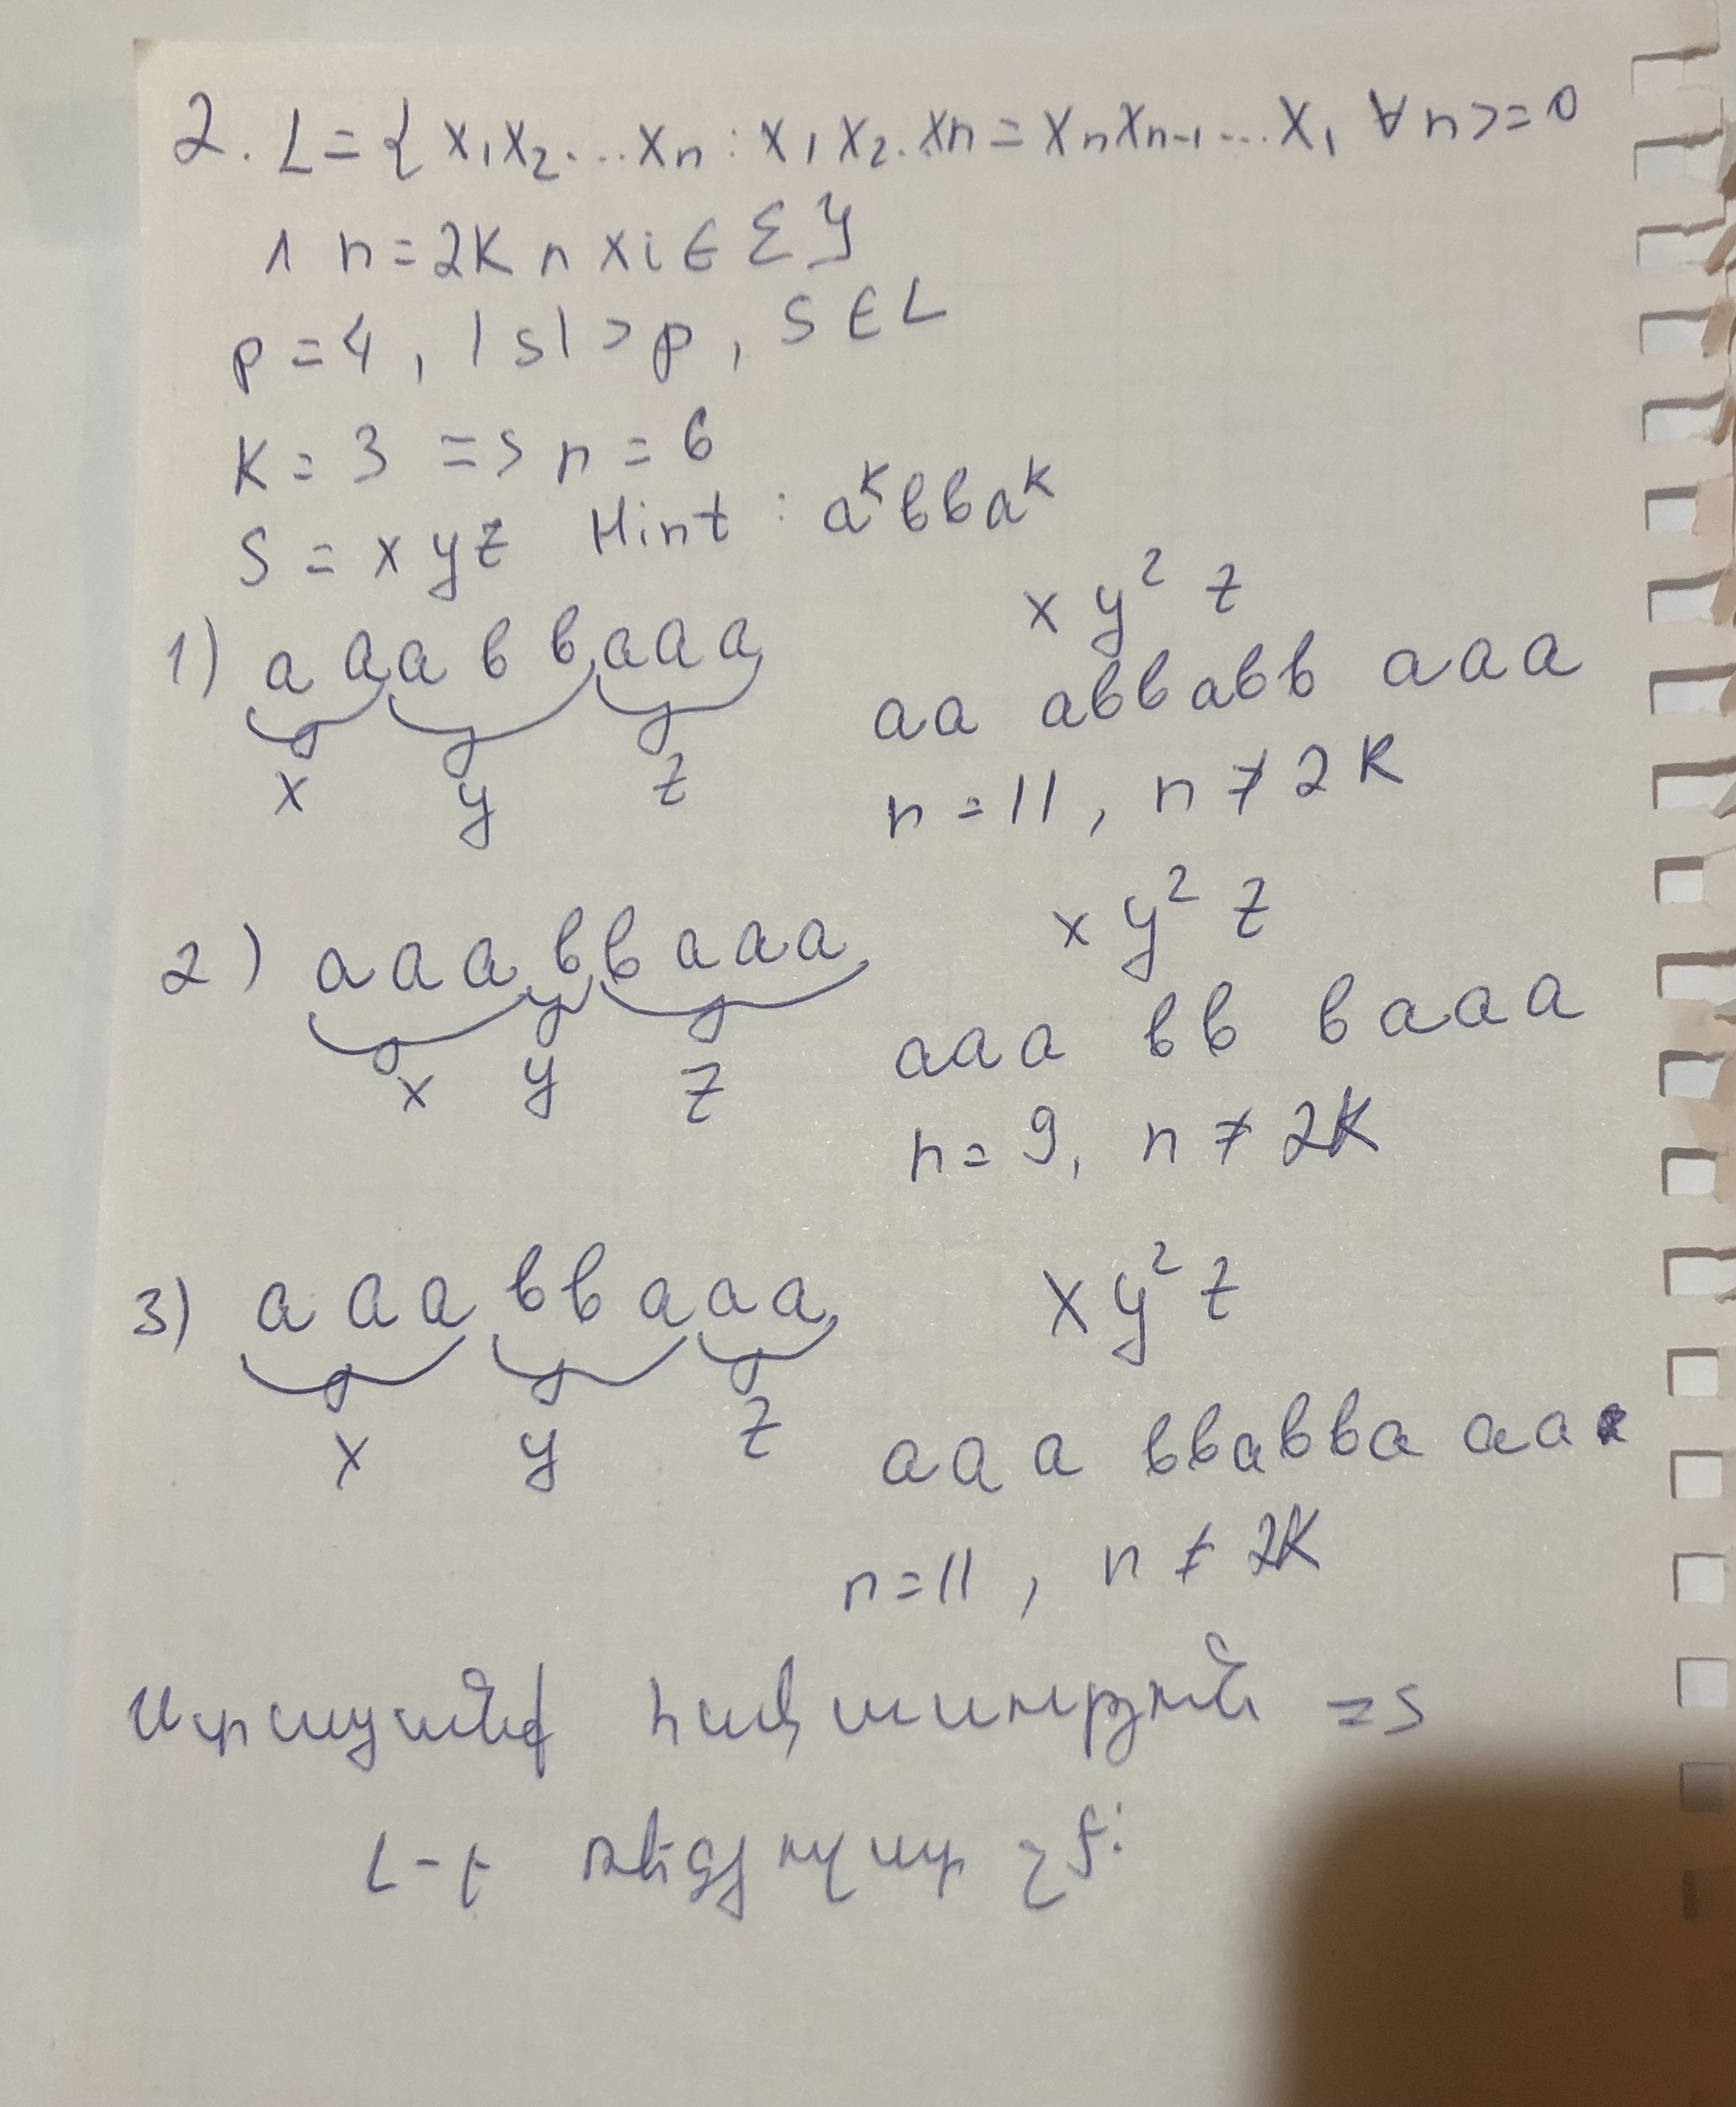 2. L = { x₁x₂...xₙ : x₁x₂.xₙ = xₙxₙ₋₁...x₁ ∀n>=0
∧ n=2k ∩ xi ∈ Σ}
p=4, |s|>p, S∈L
K=3 => n=6
S = xyz Hint: aᵏbbaᵏ
1) a a a b b a a a x y² z
x y z aa abbabb aaa
n=11, n≠2k
2) a a a b b a a a x y² z
x y z aaa bb baaa
n=9, n≠2k
3) a a a b b a a a x y² z
x y z aaa bbabba aa
n=11, n≠2k
Ստացանք հակասություն =>
L-ը ռեգուլյար չէ: